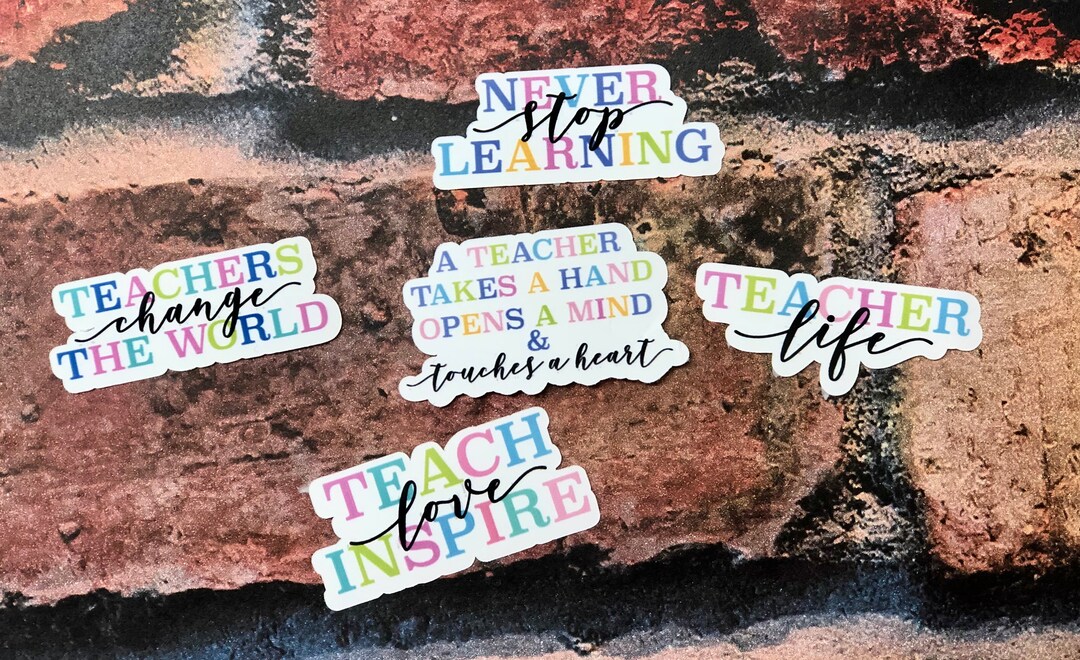 NEVER
stop
LEARNING
TEACHERS
change
THE WORLD
A TEACHER
TAKES A HAND
OPENS A MIND
&
touches a heart
TEACHER
life
TEACH
love
INSPIRE